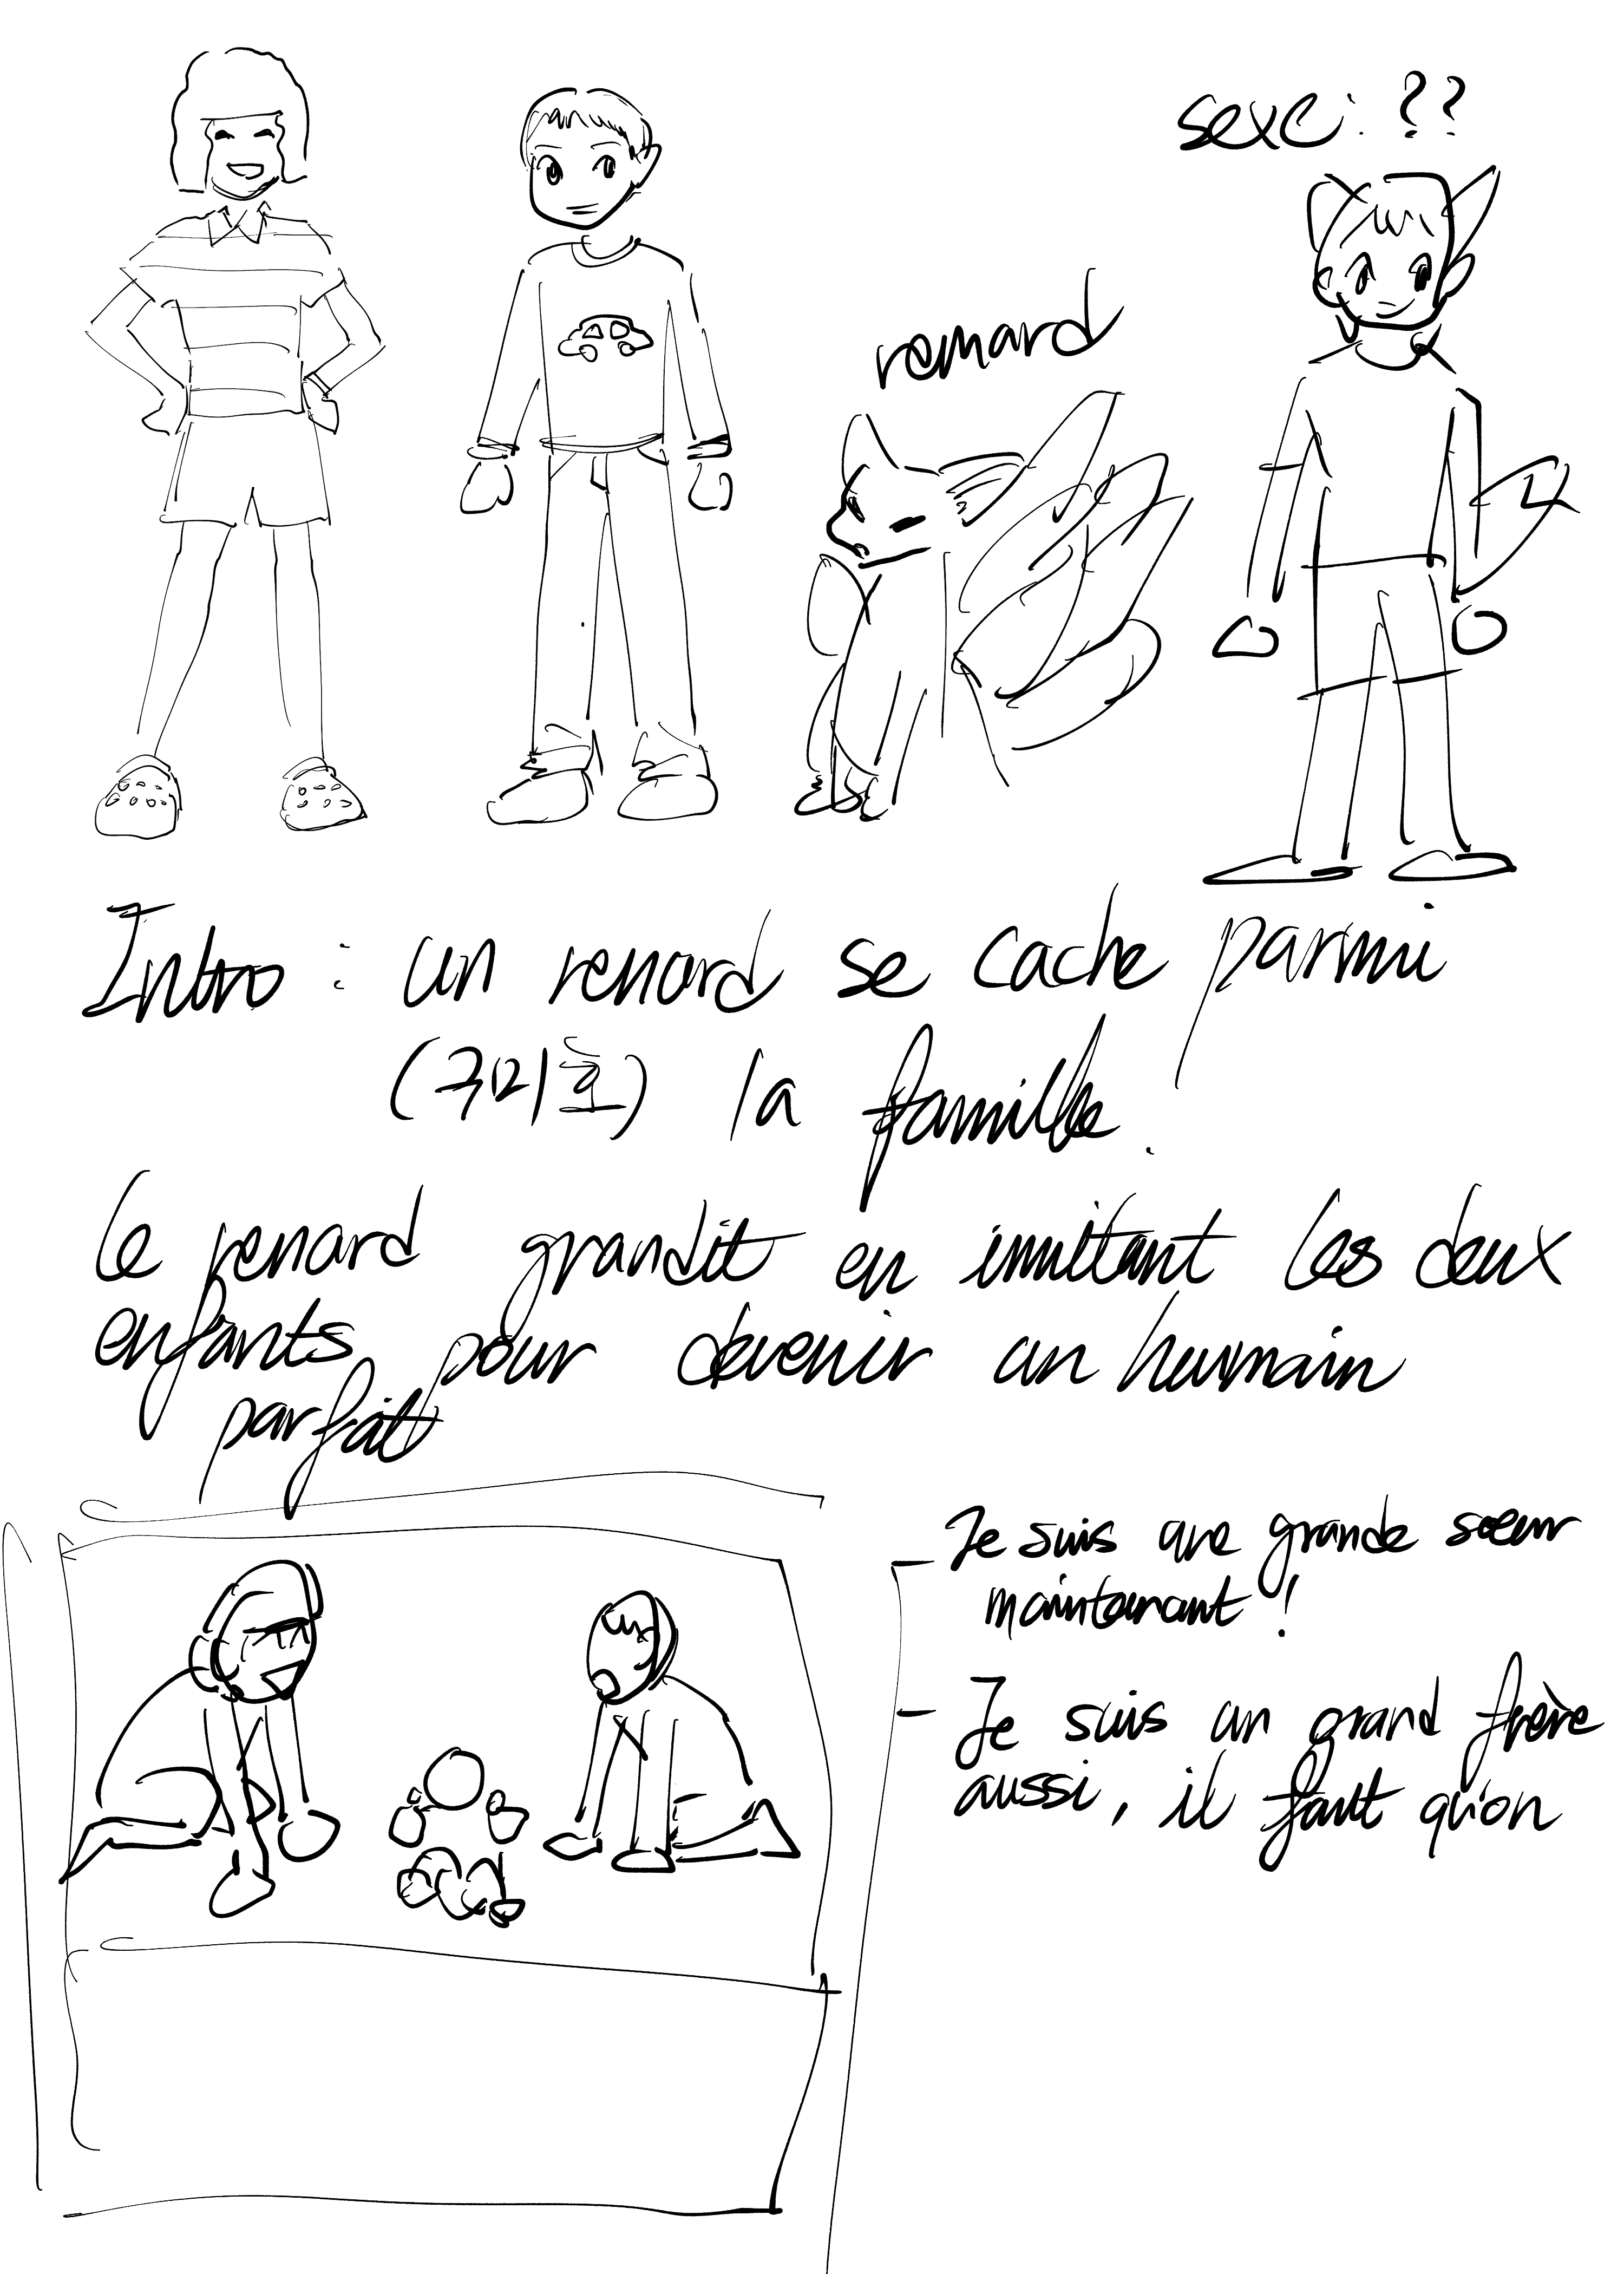 sexe : ??
renard
Intro : un renard se cache parmi
(구미호) la famille.
Le renard grandit en imitant les deux
enfants pour devenir un humain
parfait
- Je suis une grande soeur
maintenant !
- Je suis un grand frère
aussi, il faut qu'on